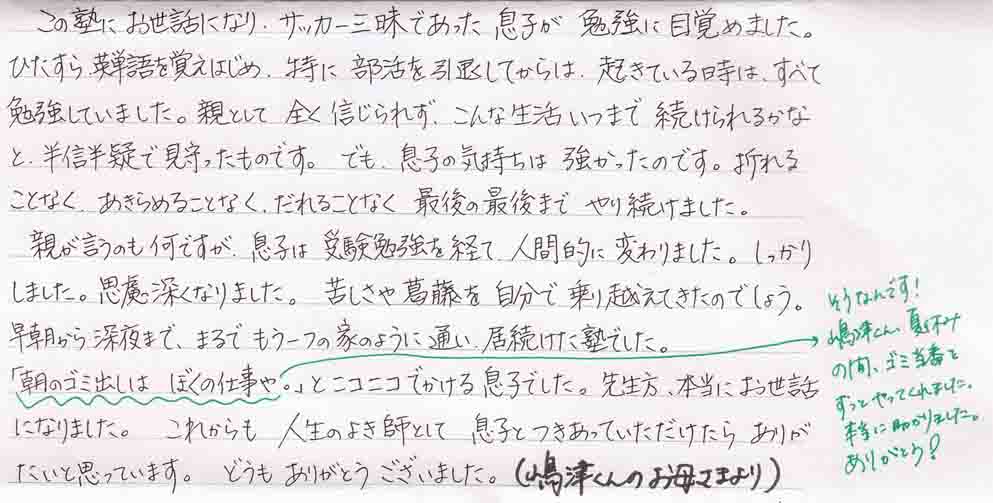 この塾にお世話になり、サッカー三昧であった息子が 勉強に目覚めました。
ひたすら、英単語を覚えはじめ、特に 部活を引退してからは、起きている時は、すべて
勉強していました。親として 全く信じられず、こんな生活いつまで 続けられるかな
と、半信半疑で見守ったものです。 でも、息子の気持ちは 強かったのです。折れる
ことなく、あきらめることなく、だれることなく 最後の最後まで やり続けました。
親が言うのも何ですが、息子は 受験勉強を経て、人間的に 変わりました。しっかり
しました。思慮深くなりました。 苦しさや葛藤を 自分で 乗り越えてきたのでしょう。
早朝から深夜まで、まるで もう一つの家のように通い、居続けた塾でした。
「朝のゴミ出しは ぼくの仕事や。」とニコニコでかける息子でした。先生方、本当にお世話
になりました。 これからも 人生のよき師として 息子とつきあっていただけたら ありが
たいと思っています。 どうもありがとうございました。(嶋津くんのお母さまより)
そうなんです!
嶋津くん、夏休み
の間、ゴミ当番を
ずっとやってくれました。
本当に助かりました。
ありがとう!